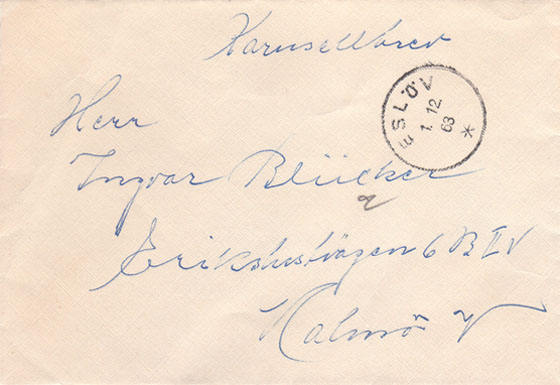 Karusellbrev
ESLÖV
1. 12.
63
Herr
Ingvar Blücher
Erikslustvägen 6 B II V
Malmö V